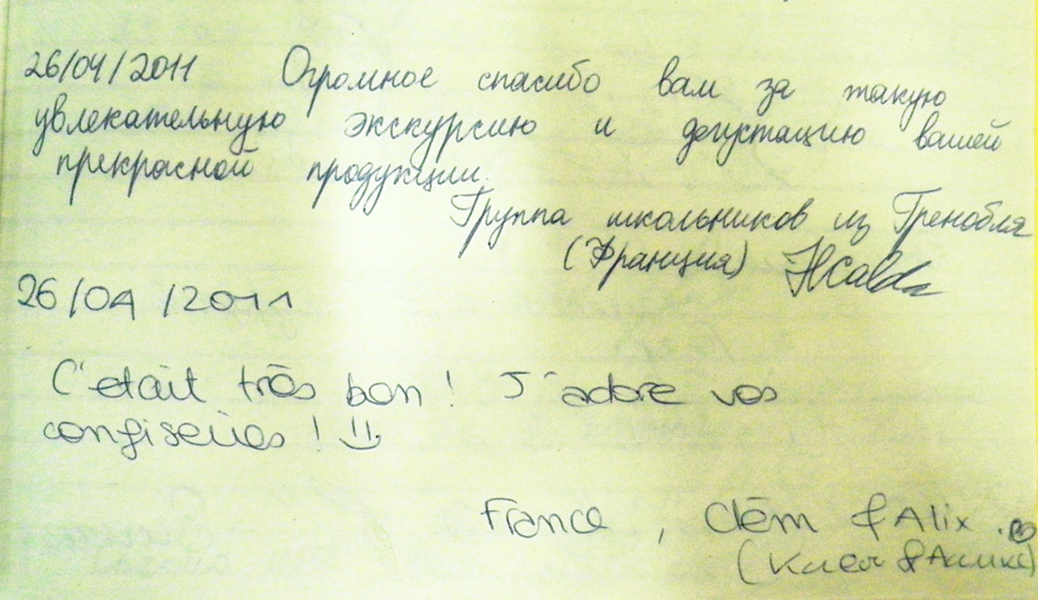 26/04/2011 Огромное спасибо вам за такую
увлекательную экскурсию и дегустацию вашей
прекрасной продукции.
Группа школьников из Гренобля
(Франция)
26/04/2011
C'etait très bon! J'adore vos
confiseries! :)
France, Clém & Alix.
(Клем & Аликс)